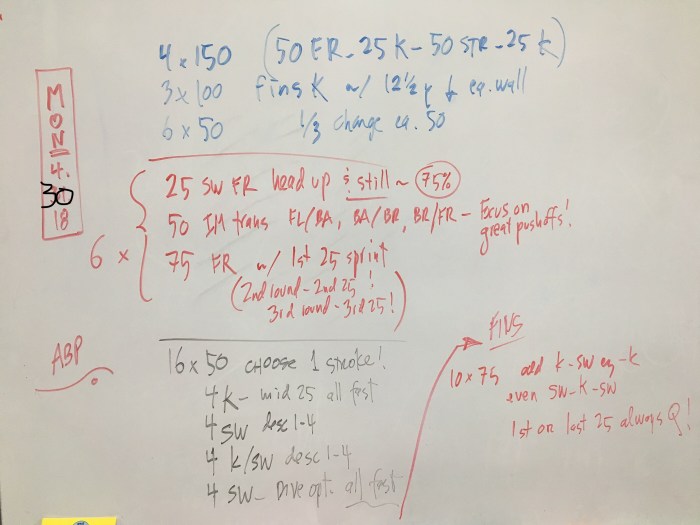 4 x 150 (50 FR - 25 K - 50 STR - 25 K)
3 x 100 fins K w/ 12 1/2 y ea. wall
6 x 50 1/3 change ea. 50
MON 4.
30
18
6 x
25 SW FR head up & still ~ 75%
50 IM trans FL/BA, BA/BR, BR/FR - Focus on
great pushoffs!
75 FR w/ 1st 25 sprint
(2nd round - 2nd 25!
3rd round - 3rd 25!)
ABP
16 x 50 choose 1 stroke!
4 K - mid 25 all fast
4 SW desc 1-4
4 k/sw desc 1-4
4 SW - Dive opt. all fast
FINS
10 x 75 odd k-sw-k
even sw-k-sw
1st or last 25 always Q!